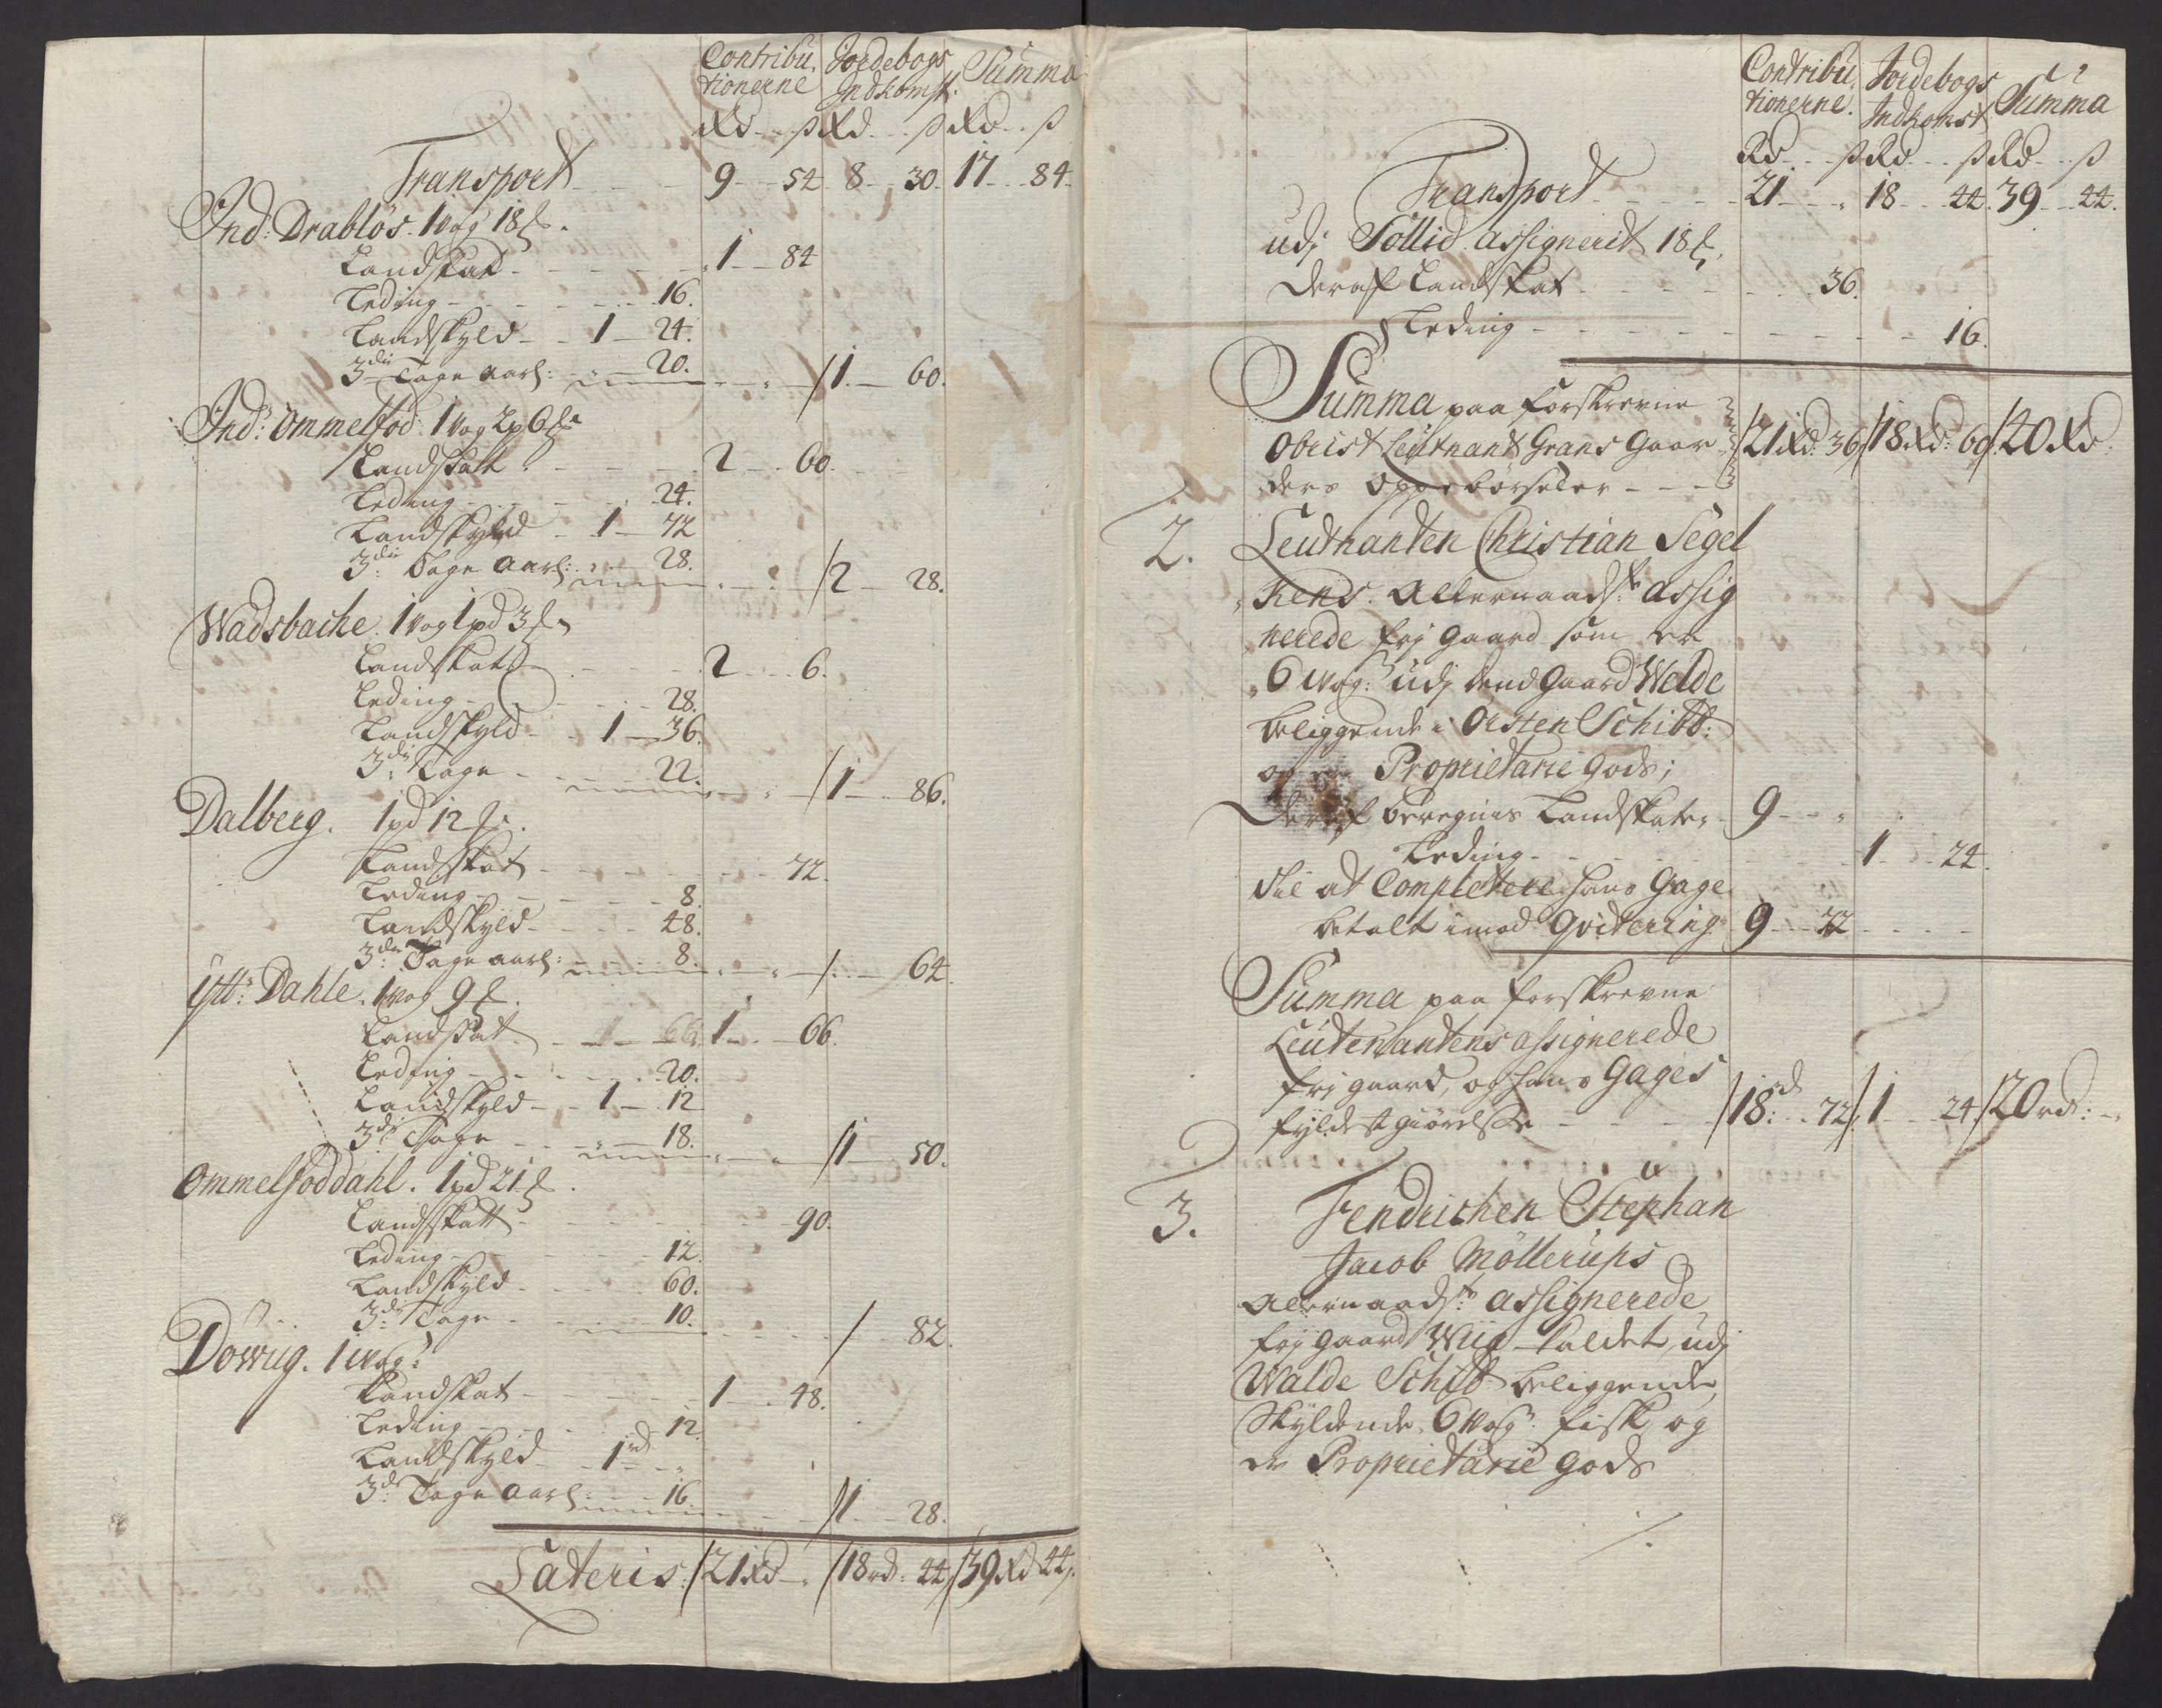 Contribu- Jordebogs Summa
tionerne Indkomst.
Rd ß Rd ß Rd ß
Transport 9 54 8 30 17 84
Ind: Drabløs 1 Wog 18
Landskat 1 84
Leding 16
Landskyld 1 24
3die Tage Aarl: 20 / 1 60
Ind: Ommelfod 1 Wog 2p 6
Landskatt 2 60
Leding 24
Landskyld 1 72
3die Tage Aarl: 28 / 2 28
Wadsbache 1 Wog 1 pd 3
Landskatt 2 6
Leding 28
Landskyld 1 36
3die Tage 22 / 1 86
Dalberg. 1 pd 12
Landskat 72
Leding 8
Landskyld 48
3die Tage Aarl: 8 / 64
Ytt: Dahle. 1 Wog 9
Landskat 1 66 1 66
Leding 20
Landskyld 1 12
3die Tage 18 / 1 50
Ommelfoddahl. 1 pd 21
Landskatt 90
Leding 12
Landskyld 60
3de Tage 10 / 82
Dowug. 1 Wog:
Landskat 1 48
Leding 12
Landskyld 1 rd
3de Tage Aarl: 16 / 1 28
Lateris / 21 Rd / 18 rd 44 / 39 Rd 44
Contribu- Jordebogs Summa
tionerne. Indkomst
Rd ß Rd ß Rd ß
Transport 21 18 44 39 44
udj Sollid assignerit 18
Deraf Landskat 36
Leding 16
Summa paa forskrevne
Obrist Leutnant Grans Gaar- / 21 Rd: 36 / 18 Rd: 60 / 40 Rd
ders Oppebørseler
2. Leutnanten Christian Segel
Kens Allernaadst assig
nerede frj gaard som er
6 Wog: udj dend Gaard Welde
beliggende iØrsten Schibb:
og er Proprietarie gods;
Deraf beregnes Landskatt 9
Leding 1 24
Til at Completere hans Gage
betalt imod Qvitering 9 72
Summa paa forskrevne
Leutenantens assignerede
frj gaard, og hans Gages
fyldest giørelse / 18 rd 72 / 1 24 / 20 rd:
3. Fendrichen Stephan
Jacob Möllerups
Allernaadst: assignerede
frj gaard Wiig kaldet, udj
Walde Schibb: beliggende,
Skyldende 6 Wog: fisk, og
er Proprietarie gods